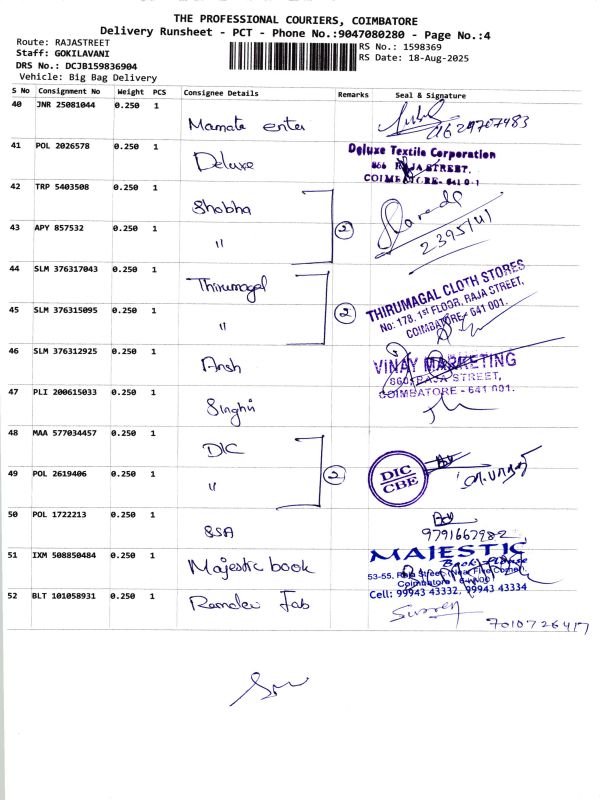 THE PROFESSIONAL COURIERS, COIMBATORE
Delivery Runsheet - PCT - Phone No.:9047080280 - Page No.:4
Route: RAJASTREET
Staff: GOKILAVANI
DRS No.: DCJB159836904
Vehicle: Big Bag Delivery
RS No.: 1598369
RS Date: 18-Aug-2025
S No Consignment No Weight PCS Consignee Details Remarks Seal & Signature
40 JNR 25081044 0.250 1 Mamata enter
41 POL 2026578 0.250 1 Deluxe Deluxe Textile Corporation
866 RAJA STREET,
COIMBATORE - 641 0 1
42 TRP 5403508 0.250 1 Shobha
43 APY 857532 0.250 1 " 2 2395141
44 SLM 376317043 0.250 1 Thirumagal THIRUMAGAL CLOTH STORES
No: 178, 1st FLOOR, RAJA STREET,
COIMBATORE - 641 001.
45 SLM 376315095 0.250 1 " 2
46 SLM 376312925 0.250 1 Ansh VINAY MARKETING
660, RAJA STREET,
COIMBATORE - 641 001.
47 PLI 200615033 0.250 1 Singhvi
48 MAA 577034457 0.250 1 DIC DIC
CBE
49 POL 2619406 0.250 1 " 2
50 POL 1722213 0.250 1 SSA 9791667982
51 IXM 508850484 0.250 1 Majestic book MAJESTIC
Book House
53-55, Raja Street, (Near Five Corner),
Coimbatore
Cell: 99943 43332, 99943 43334
52 BLT 101058931 0.250 1 Ramdev Fab
7010726417